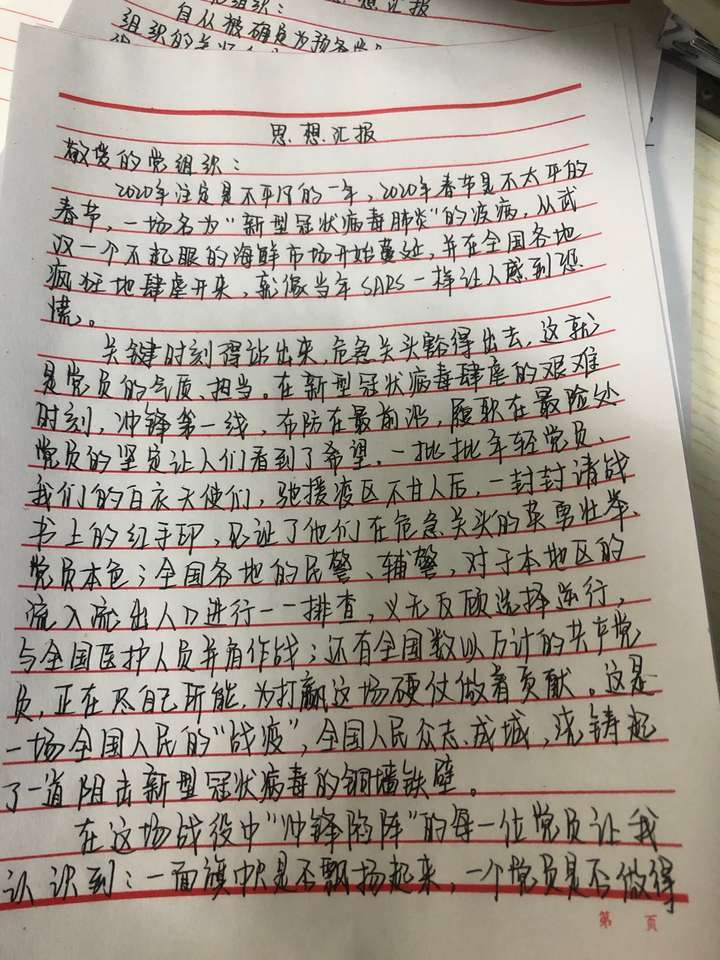 组织：
思想汇报
自从被确定为
组织的
思想汇报
敬贵的党组织：
2020年注定是不平凡的一年，2020年春节是不太平的
春节，一场名为“新型冠状病毒肺炎”的疫病，从武
汉一个不起眼的海鲜市场开始蔓延，并在全国各地
疯狂地肆虐开来，就像当年SARS一样让人感到恐
慌。
关键时刻得站出来，危急关头豁得出去，这就
是党员的气质、担当。在新型冠状病毒肆虐的艰难
时刻，冲锋第一线，布防在最前沿，履职在最险处
党员的坚定让人们看到了希望。一批批年轻党员、
我们的白衣天使们，驰援疫区不甘人后，一封封请战
书上的红手印，见证了他们在危急关头的英勇壮举、
党员本色；全国各地的民警、辅警，对于本地区的
流入流出人口进行一一排查，义无反顾选择逆行，
与全国医护人员并肩作战；还有全国数以万计的共产党
员，正在尽自己所能，为打赢这场硬仗做着贡献。这是
一场全国人民的“战疫”，全国人民众志成城，浇铸起
了一道阻击新型冠状病毒的铜墙铁壁。
在这场战役中“冲锋陷阵”的每一位党员让我
认识到：一面旗帜是否飘扬起来，一个党员是否做得
第 页